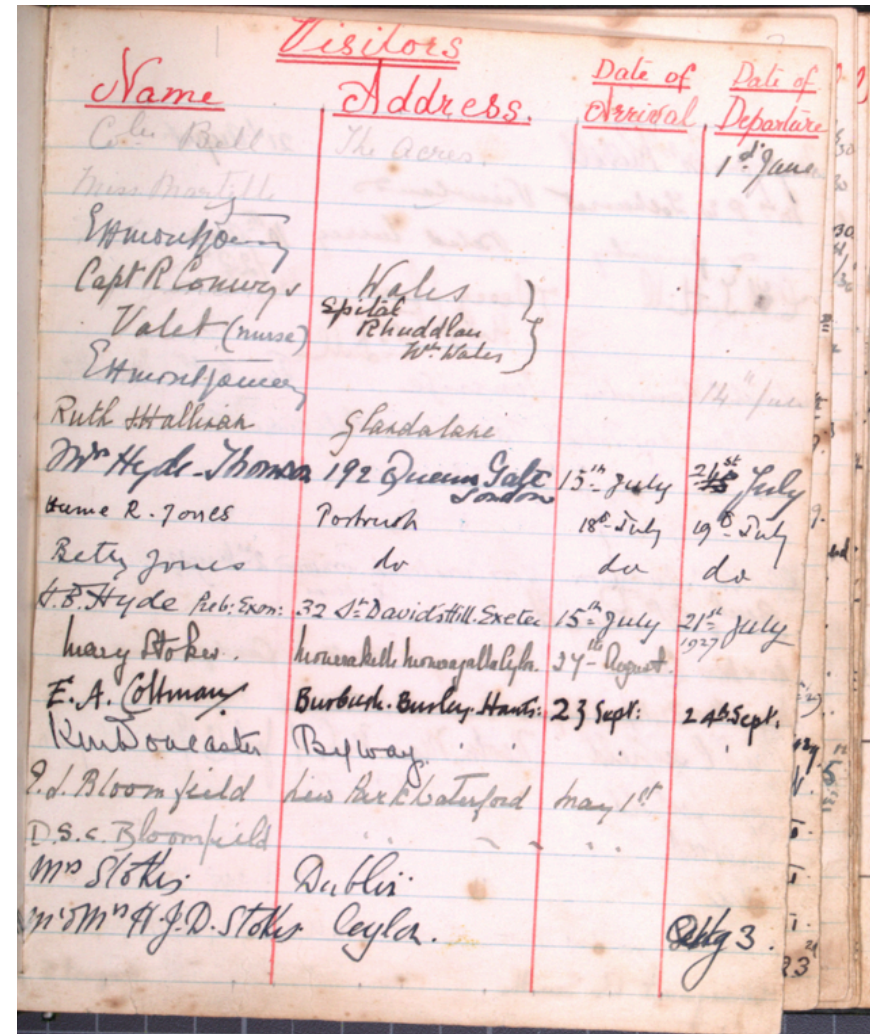 Visitors
Name Address. Date of Arrival Date of Departure
Bell The Acres 1st June
Miss
EHMontgomery
Capt R Conwy & Wales
Valet (nurse) Spital Rhuddlan Nth Wales
EHMontgomery 14th June
Ruth Hallinan Glandalane
Mrs Hyde-Thomson 192 Queens Gate London 15th July 21st July
Hume R. Jones Portrush 18th July 19th July
Betty Jones do do do
H.B. Hyde Preb: Exon: 32 St Davids Hill. Exeter 15th July 21st July 1927
Mary Stokes. Monerakelle Ceylon. 27th August.
E. A. Coltman Burbush. Burley. Hants: 23 Sept: 24th Sept.
Doncaster Byway.
Bloomfield New Park Waterford May 1st
D.S.C. Bloomfield
Mrs Stokes Dublin
Mr & Mrs H.J.D. Stokes Ceylon. 3.